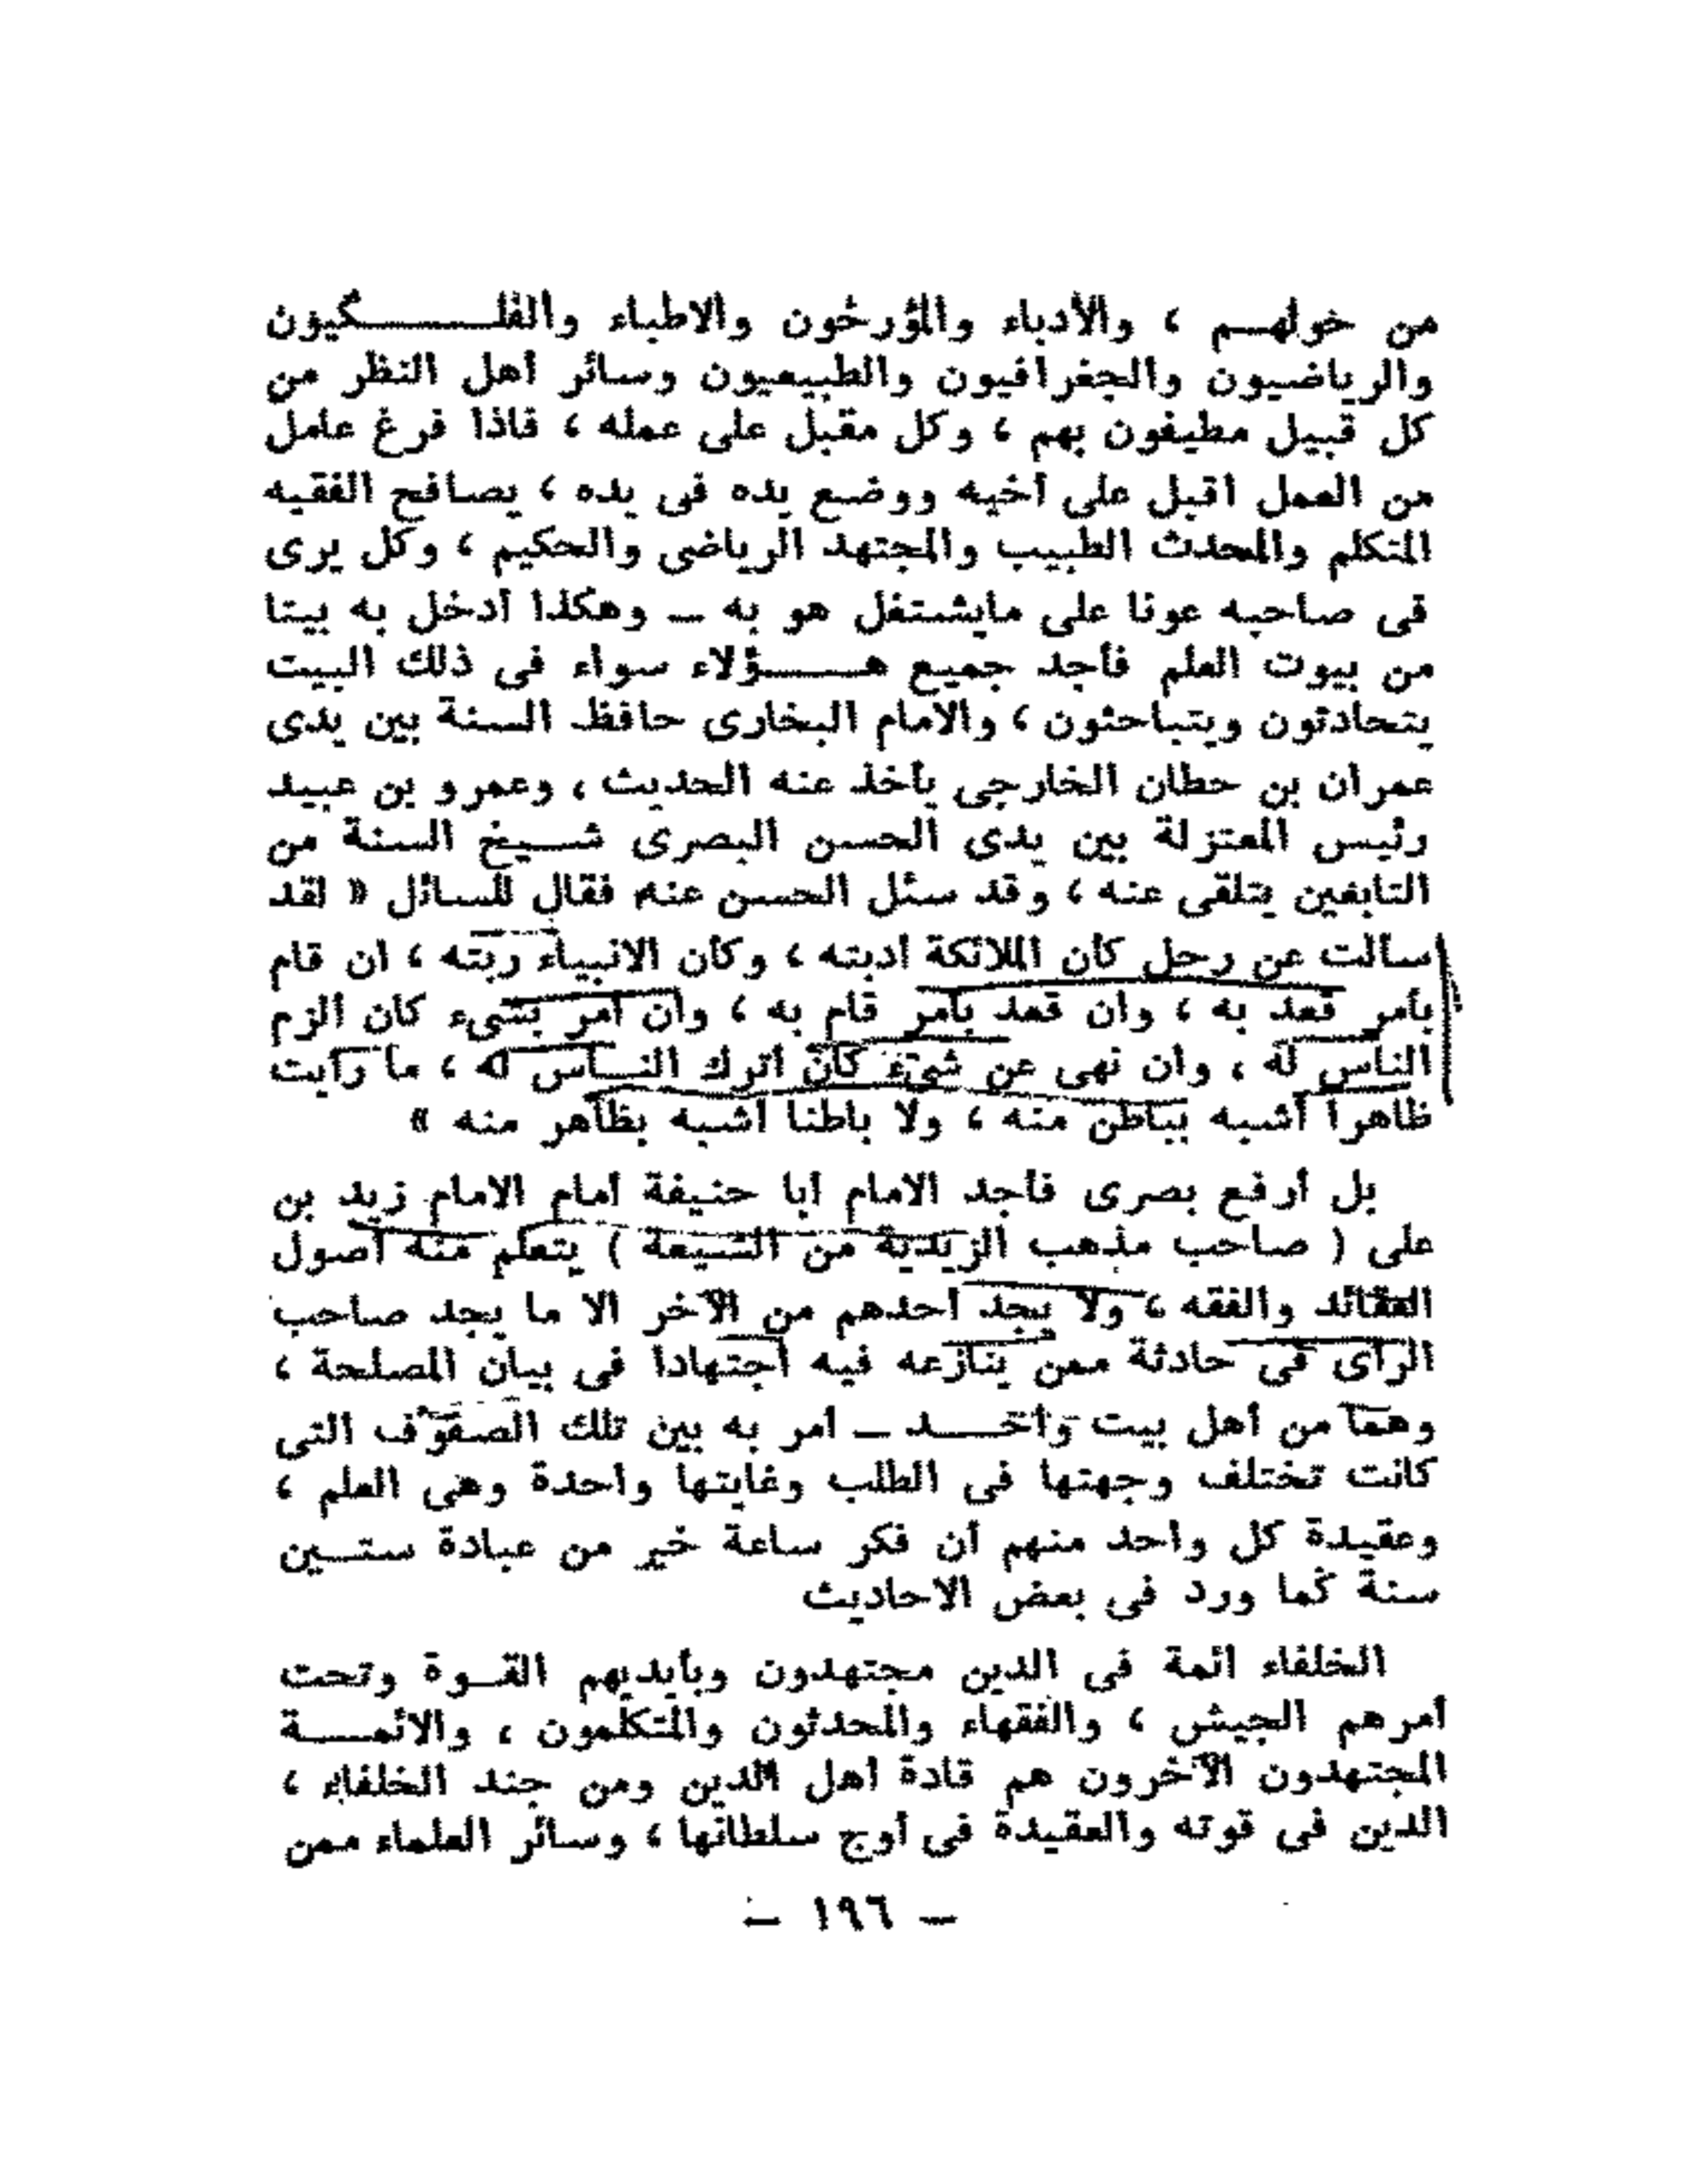 من حولهم ، والأدباء والمؤرخون والاطباء والفلكيون
والرياضيون والجغرافيون والطبيعيون وسائر أهل النظر من
كل قبيل مطيفون بهم ، وكل مقبل على عمله ، فاذا فرغ عامل
من العمل أقبل على أخيه ووضع يده فى يده ، يصافح الفقيه
المتكلم والمحدث الطبيب والمجتهد الرياضى والحكيم ، وكل يرى
فى صاحبه عونا على مايشتغل هو به ــ وهكذا أدخل به بيتا
من بيوت العلم فأجد جميع هؤلاء سواء فى ذلك البيت
يتحادثون ويتباحثون ، والامام البخارى حافظ السنة بين يدى
عمران بن حطان الخارجى يأخذ عنه الحديث ، وعمرو بن عبيد
رئيس المعتزلة بين يدى الحسن البصرى شيخ السنة من
التابعين يتلقى عنه ، وقد سئل الحسن عنه فقال للسائل « لقد
سألت عن رجل كأن الملائكة أدبته ، وكأن الانبياء ربته ، ان قام
بأمر قعد به ، وان قعد بأمر قام به ، وان أمر بشىء كان ألزم
الناس له ، وان نهى عن شىء كان أترك الناس له ، ما رأيت
ظاهرا أشبه بباطن منه ، ولا باطنا أشبه بظاهر منه »
بل أرفع بصرى فأجد الامام أبا حنيفة أمام الامام زيد بن
على ( صاحب مذهب الزيدية من الشيعة ) يتعلم منه أصول
العقائد والفقه ، ولا يجد أحدهم من الآخر الا ما يجد صاحب
الرأى فى حادثة ممن ينازعه فيه اجتهادا فى بيان المصلحة ،
وهما من أهل بيت واحد ــ أمر به بين تلك الصفوف التى
كانت تختلف وجهتها فى الطلب وغايتها واحدة وهى العلم ،
وعقيدة كل واحد منهم أن فكر ساعة خير من عبادة ستين
سنة كما ورد فى بعض الاحاديث
الخلفاء ائمة فى الدين مجتهدون وبأيديهم القوة وتحت
أمرهم الجيش ، والفقهاء والمحدثون والمتكلمون ، والائمة
المجتهدون الآخرون هم قادة أهل الدين ومن جند الخلفاء ،
الدين فى قوته والعقيدة فى أوج سلطانها ، وسائر العلماء ممن
ــ ١٩٦ ــ